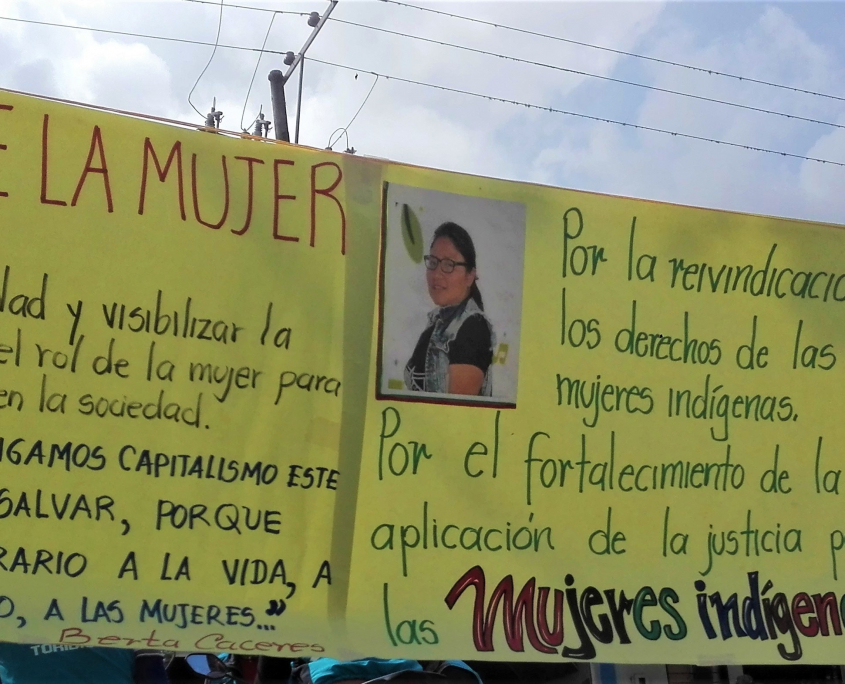 E LA MUJER
dad y visibilizar la
el rol de la mujer para
en la sociedad.
IGAMOS CAPITALISMO ESTE
SALVAR, PORQUE
RARIO A LA VIDA, A
O, A LAS MUJERES..."
Berta Caceres
Por la reivindicació
los derechos de las
mujeres indígenas.
Por el fortalecimiento de la
aplicación de la justicia p
las Mujeres indígen